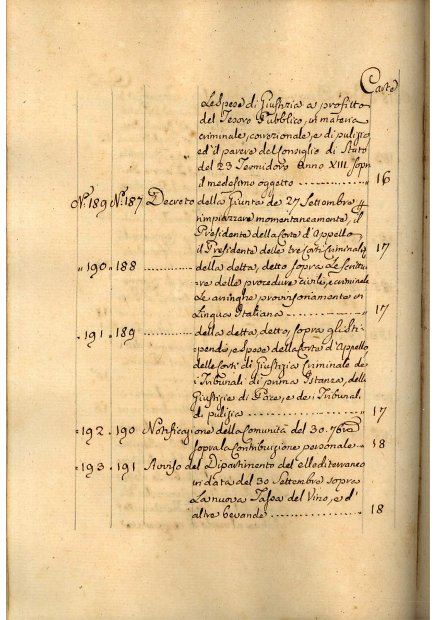 Carte
Le Spese di Giustizia a profitto
del Tesoro Pubblico, in materia
criminale, correzionale, e di pulizia
ed il parere del Consiglio di Stato
del 23 Termidoro Anno XIII sopra
il medesimo oggetto 16
N.º 189 N.º 187 Decreto della Giunta de' 27 Settembre
rimpiazzare momentaneamente, il
Presidente della Corte d'Appello
il Presidente delle tre Corti Criminali 17
" 190 " 188 della detta, detto sopra Le Scrittu
re delle procedure civile, e criminale
Le aringhe provvisionamente in
Lingua Italiana 17
" 191 " 189 della detta, detto, sopra gli Sti
pendi, e Spese della Corte d'Appello
delle Corti di Giustizia Criminale de
i Tribunali di prima Istanza, delle
Giustizie di Pace, e de i Tribunal.
di pulizia 17
" 192 " 190 Notificazione della Comunità del 30. 7bre
sopra la Contribuzione personale 18
" 193 " 191 Avviso del Dipartimento del Mediterraneo
in data del 30 Settembre sopra
La nuova Tassa del Vino, e d'
altre bevande 18